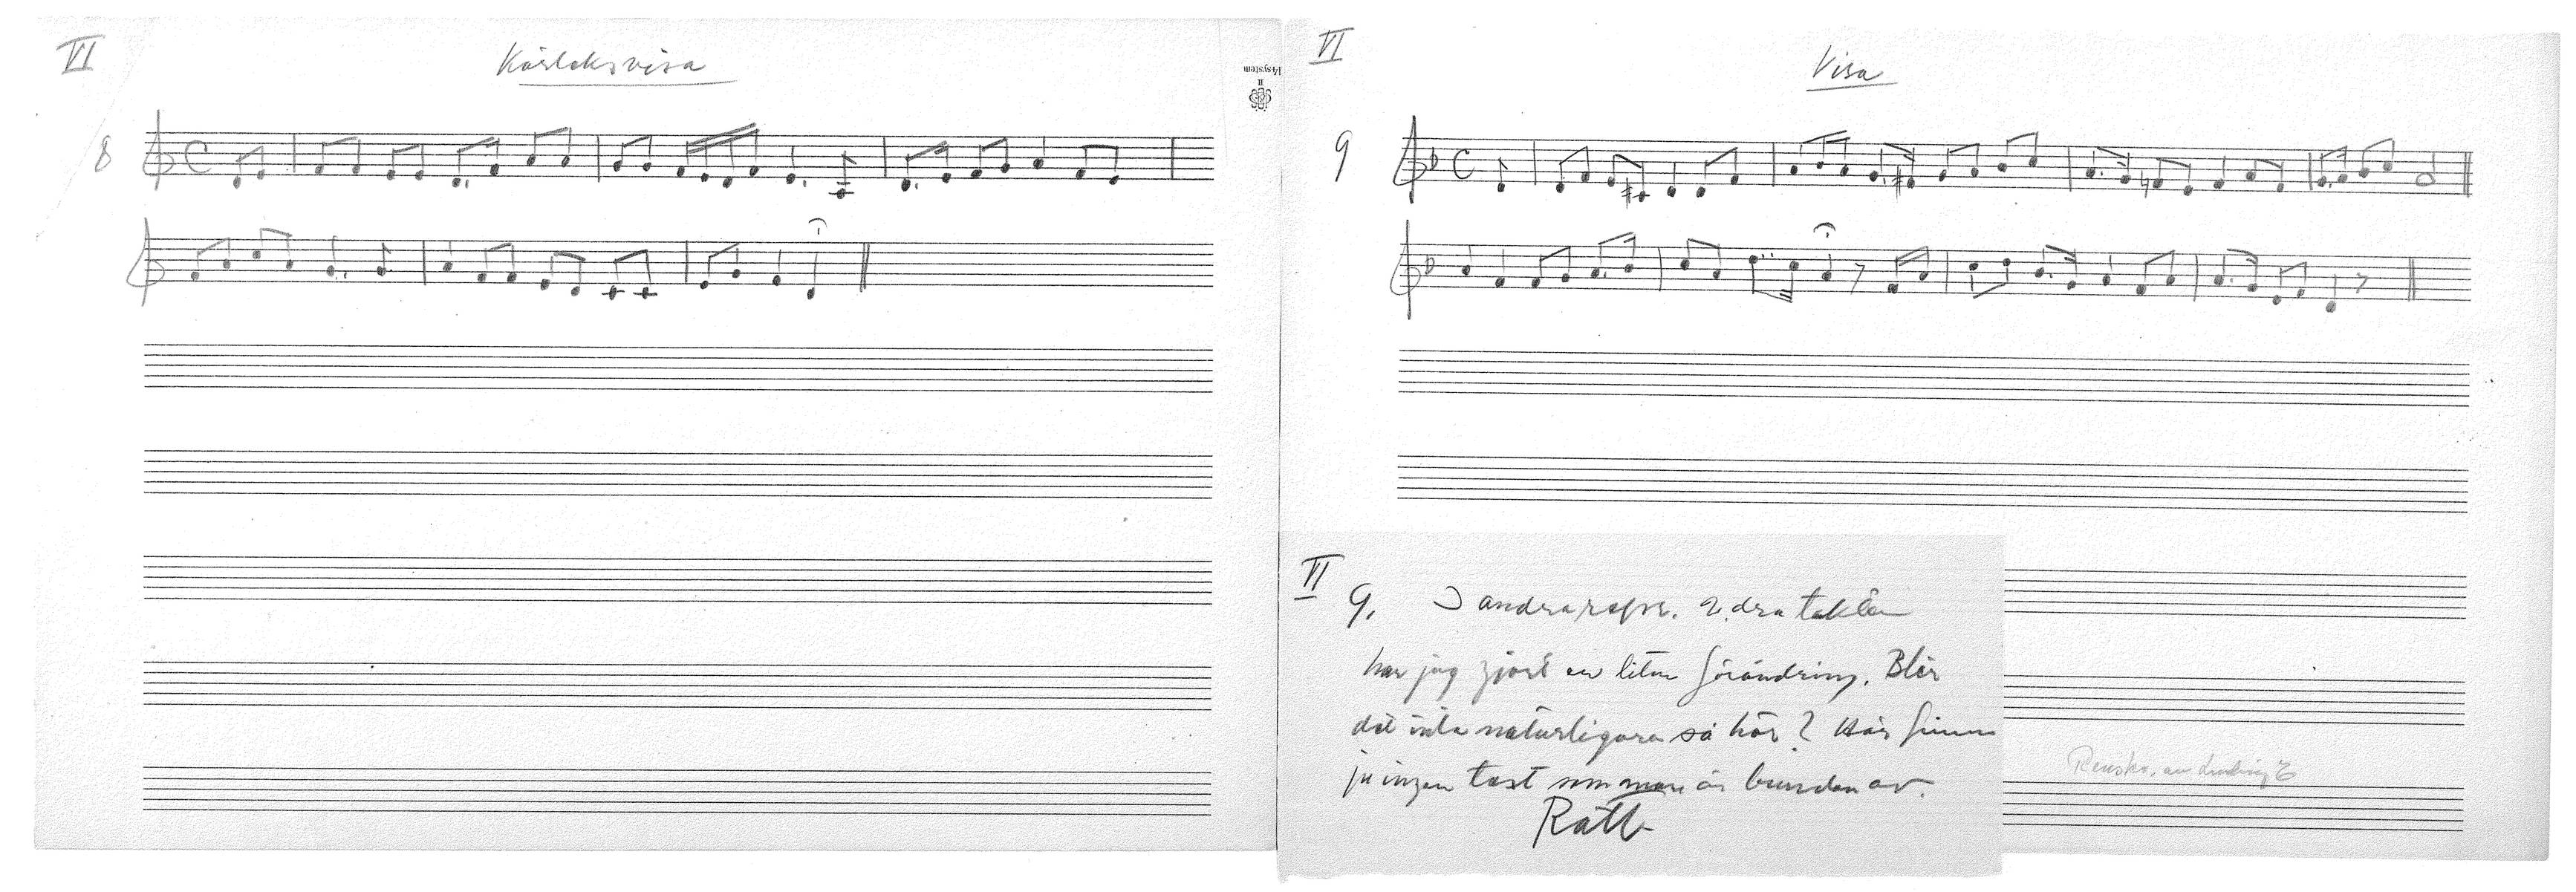 VI
Kärleksvisa
14 system
II
8
VI
Visa
9
VI
9. I andra repr. 2.dra takten
har jag gjort en liten förändring. Blir
det inte naturligare så här? Här finns
ju ingen text som man är bunden av.
Rätt
Renskr. av